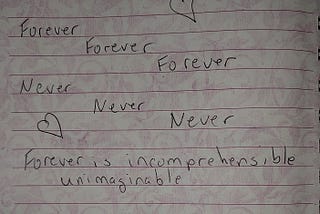 Forever
Forever
Forever
Never
Never
Never
Forever is incomprehensible
unimaginable